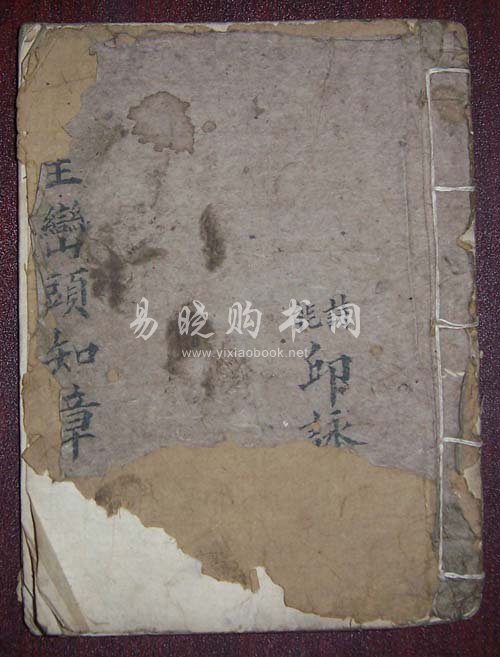 印詠
巒頭知章
易晓购书网
www.yixiaobook.net